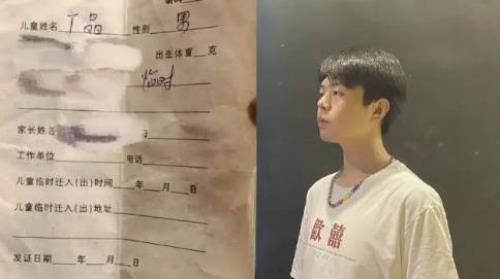 儿童姓名 丁晶 性别 男
出生体重 克
临时
家长姓名
工作单位 电话
儿童临时迁入(出)时间 年 月 日
儿童临时迁入(出)地址
发证日期 年 月 日
歡囍